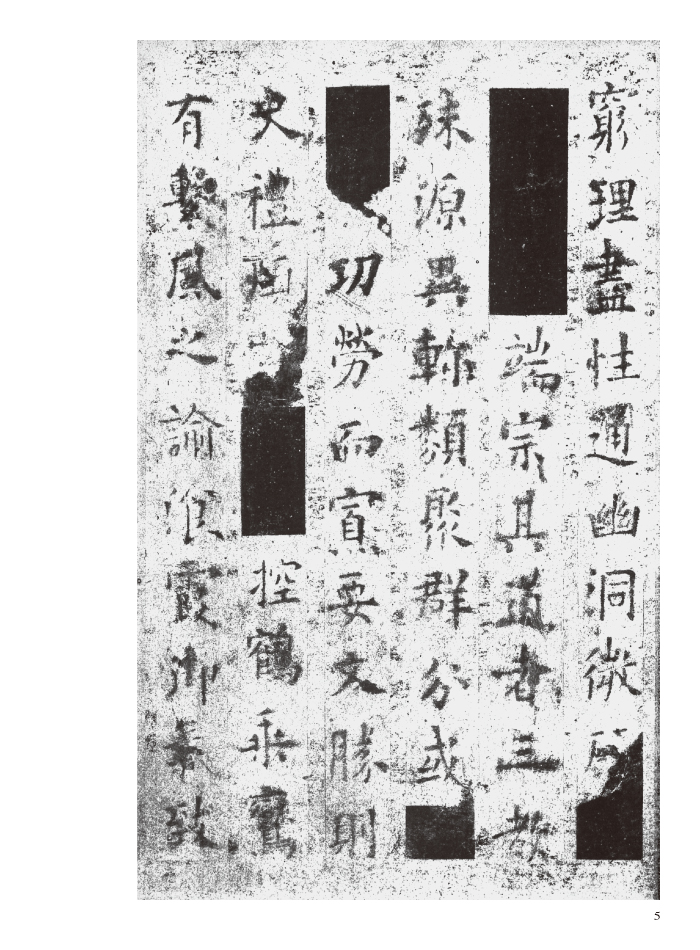 窮理盡性通幽洞微
端宗其道者三教
殊源異軫類聚群分或
功勞而寡要文勝則
史禮 控鶴乘鸞
有繫風之諭湌霞御氣致
5